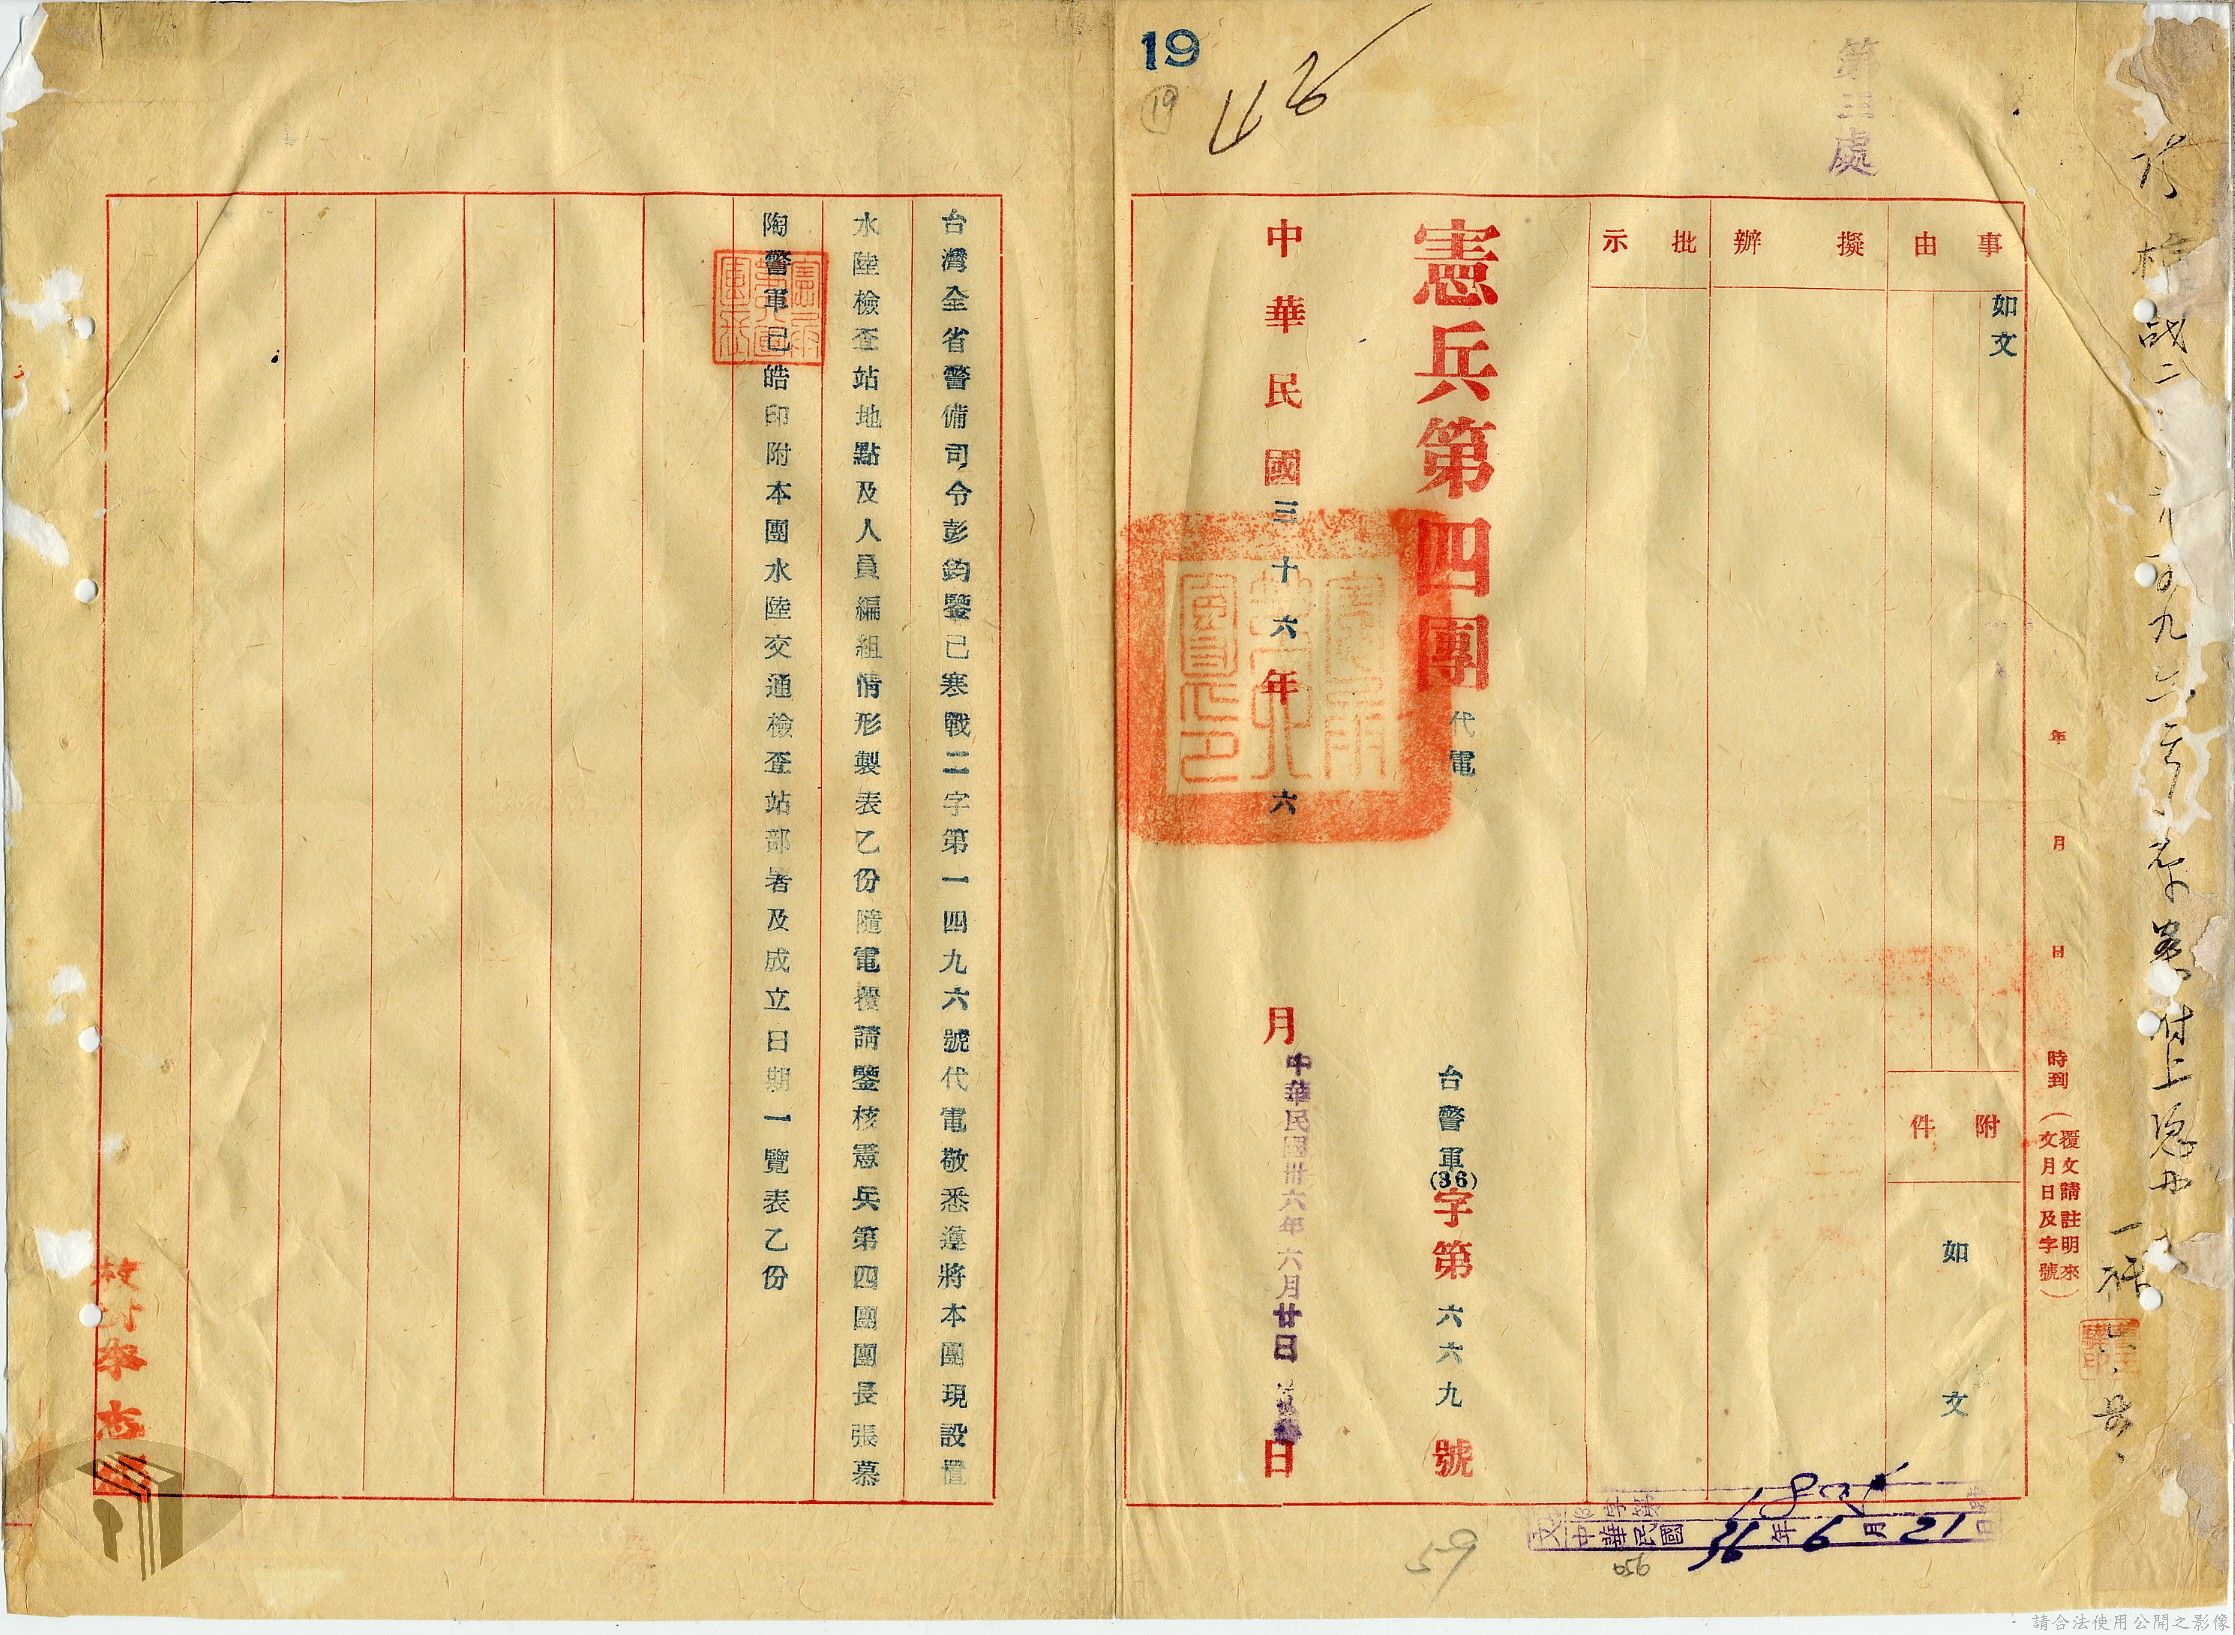 19
19
第三處
事由
如文
附件
如文
擬辦
批示
年 月 日 時到
(覆文請註明來文月日及字號)
憲兵第四團代電
台警軍(36)字第六六九號
中華民國三十六年六月 日
中華民國卅六年六月廿日
台灣全省警備司令彭鈞鑒已寒戰二字第一四九六號代電敬悉遵將本團現設置
水陸檢查站地點及人員編組情形製表乙份隨電覆請鑒核憲兵第四團團長張慕
陶警軍已皓印附本團水陸交通檢查站部署及成立日期一覽表乙份
校對李志
中華民國36年6月21日
59
056
請合法使用公開之影像